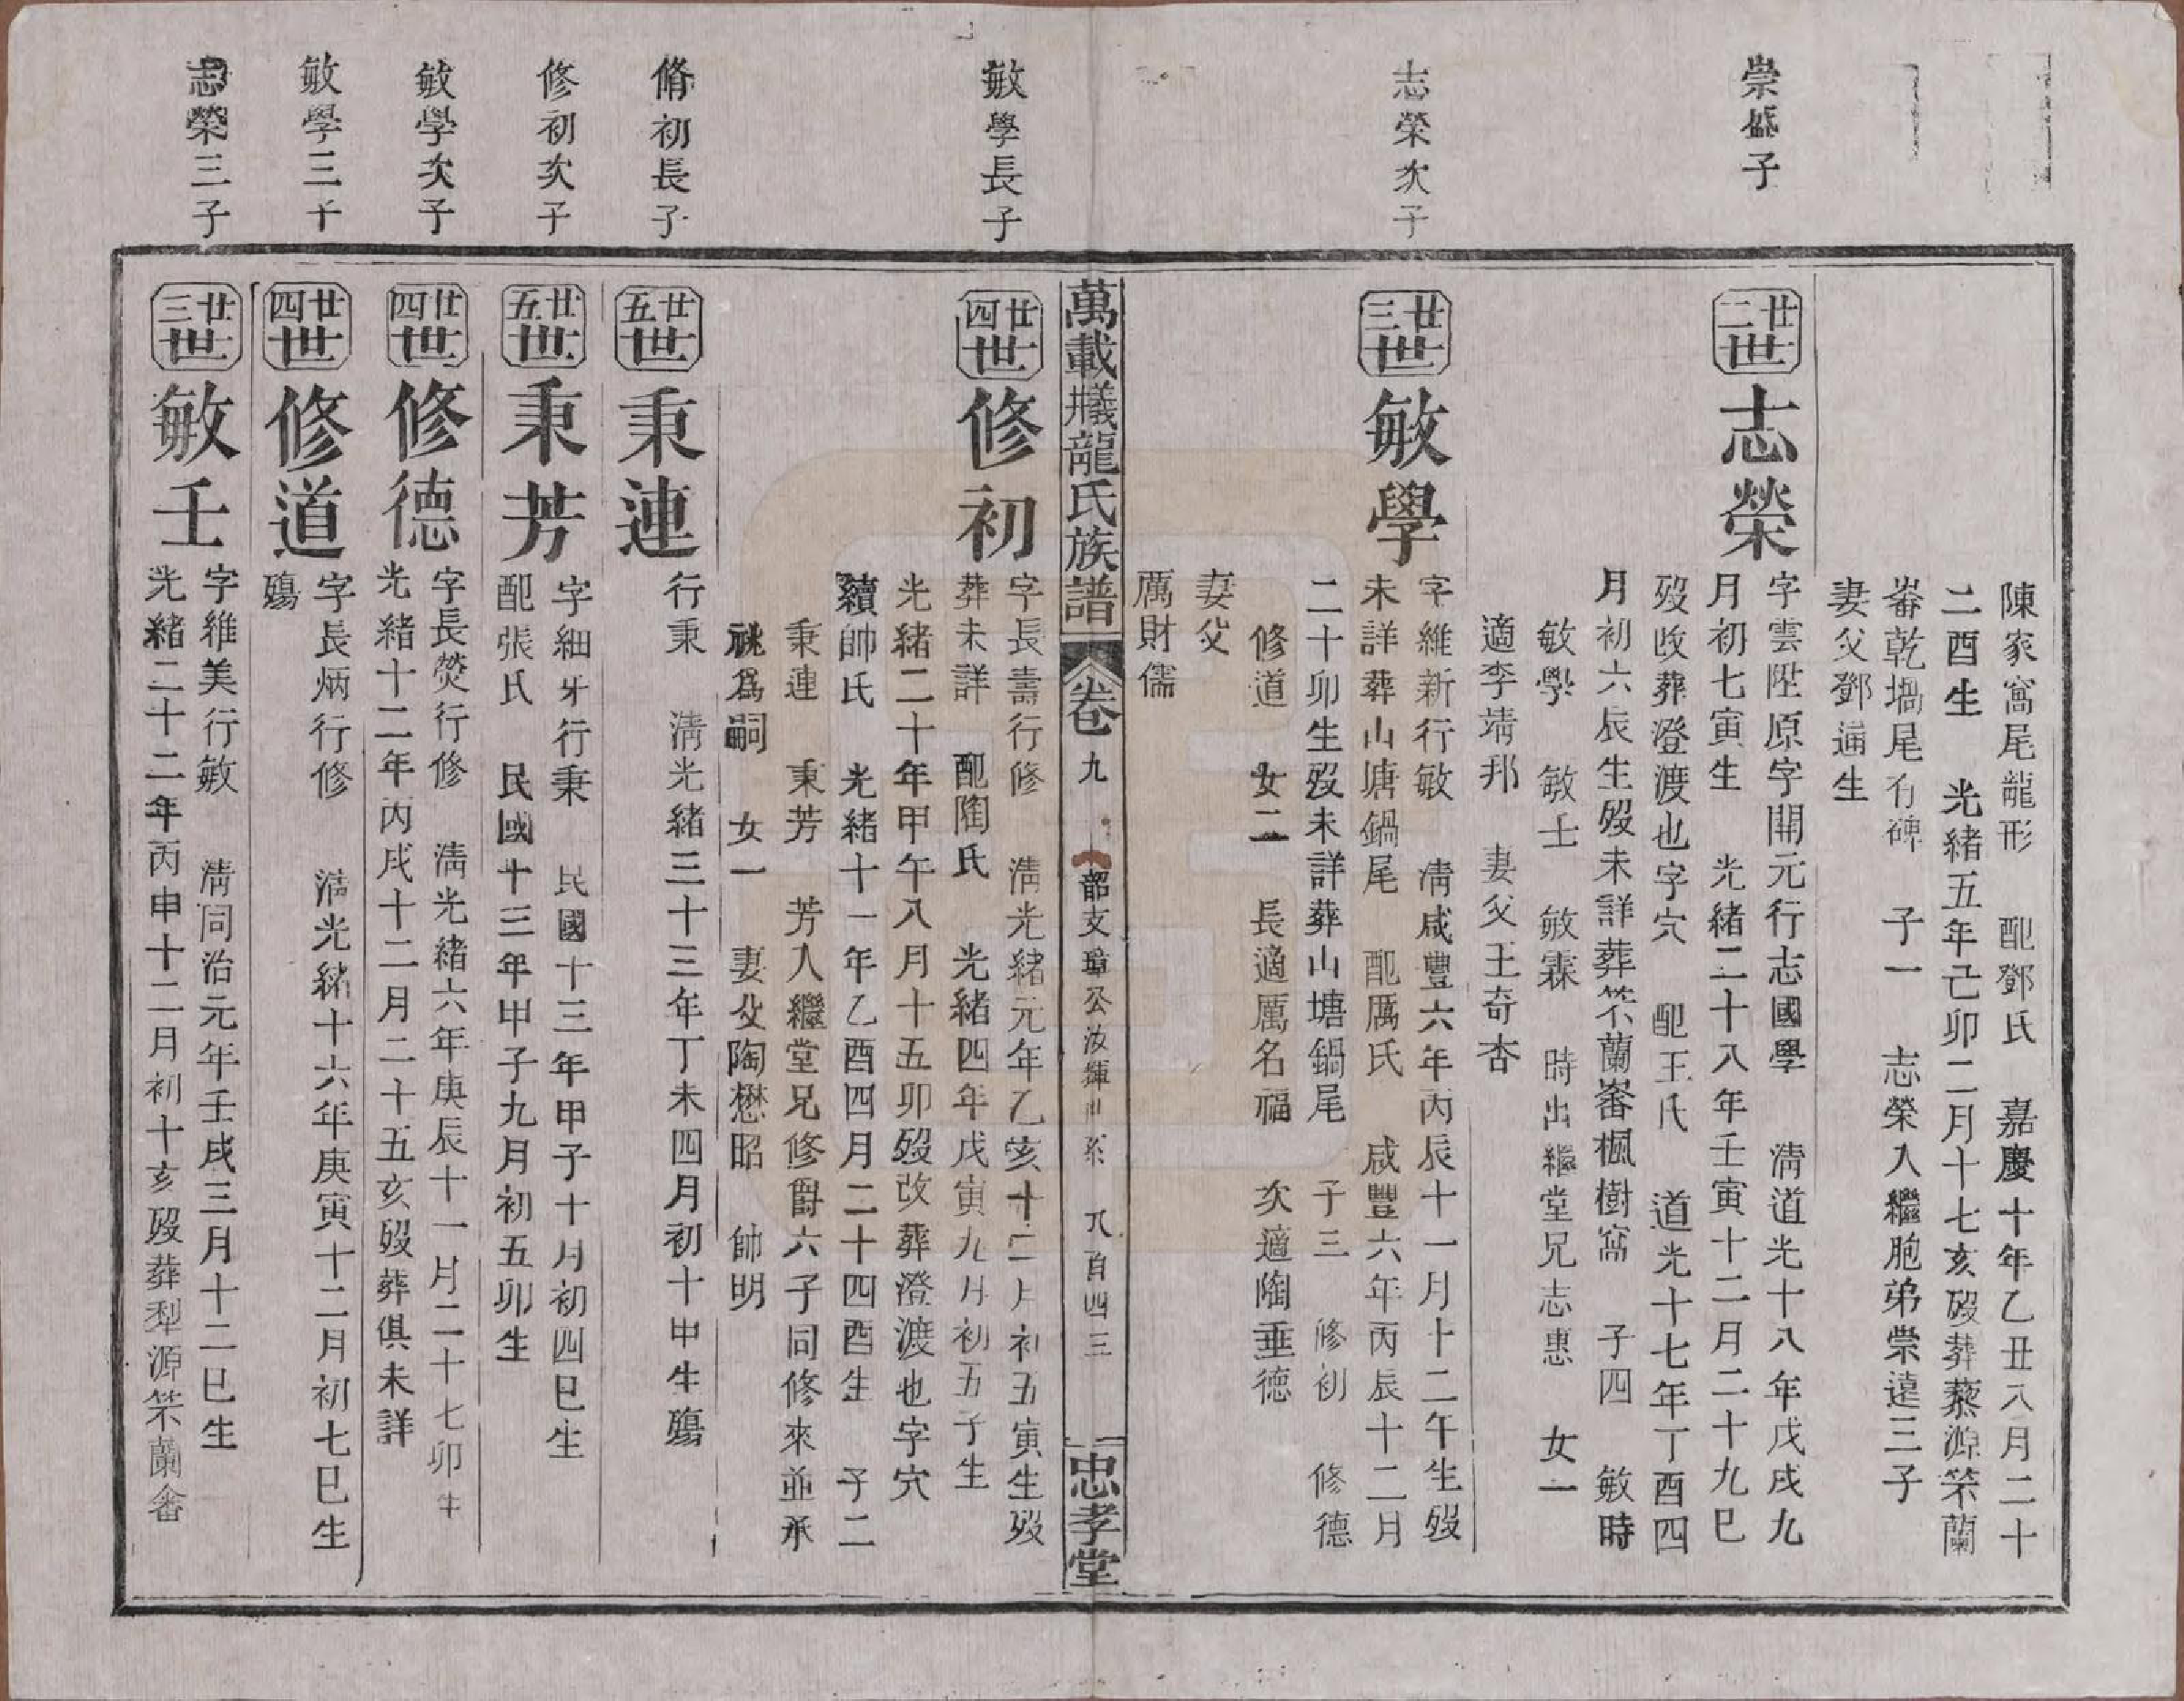 陳家窩尾龍形　配鄧氏　嘉慶十年乙丑八月二十
二酉生　光緒五年己卯二月十七亥歿葬蔡源笨蘭
畲乾塌尾有碑　子一　志榮入繼胞弟崇遠三子
妻父鄧通生
崇盛子
廿二世
志榮
字雲陞原字開元行志國學　淸道光十八年戊戌九
月初七寅生　光緒二十八年壬寅十二月二十九巳
歿改葬澄渡也字穴　配王氏　道光十七年丁酉四
月初六辰生歿未詳葬笨蘭畲楓樹窩　子四　敏時
敏學　敏壬　敏霖　時出繼堂兄志惠　女一
適李靖邦　妻父王奇杏
志榮次子
廿三世
敏學
字維新行敏　淸咸豐六年丙辰十一月十二午生歿
未詳葬山塘鍋尾　配厲氏　咸豐六年丙辰十二月
二十卯生歿未詳葬山塘鍋尾　子三　修初　修德
修道　女二　長適厲名福　次適陶垂德
妻父
厲財儒
萬載㼁龍氏族譜
卷九　韶支璋公汝輝山系　八百四三
忠孝堂
敏學長子
廿四世
修初
字長壽行修　淸光緒元年乙亥十二月初五寅生歿
葬未詳　配陶氏　光緒四年戊寅九月初五子生
光緒二十年甲午八月十五卯歿改葬澄渡也字穴
續帥氏　光緒十一年乙酉四月二十四酉生　子二
秉連　秉芳　芳入繼堂兄修爵六子同修來並承
祧爲嗣　女一　妻父陶懋昭　帥明
修初長子
廿五世
秉連
行秉　淸光緒三十三年丁未四月初十申生殤
修初次子
廿五世
秉芳
字細牙行秉　民國十三年甲子十月初四巳生
配張氏　民國十三年甲子九月初五卯生
敏學次子
廿四世
修德
字長熒行修　淸光緒六年庚辰十一月二十七卯生
光緒十二年丙戌十二月二十五亥歿葬俱未詳
敏學三子
廿四世
修道
字長炳行修　淸光緒十六年庚寅十二月初七巳生
殤
志榮三子
廿三世
敏壬
字維美行敏　淸同治元年壬戌三月十二巳生
光緒二十二年丙申十二月初十亥歿葬犁源笨蘭畲